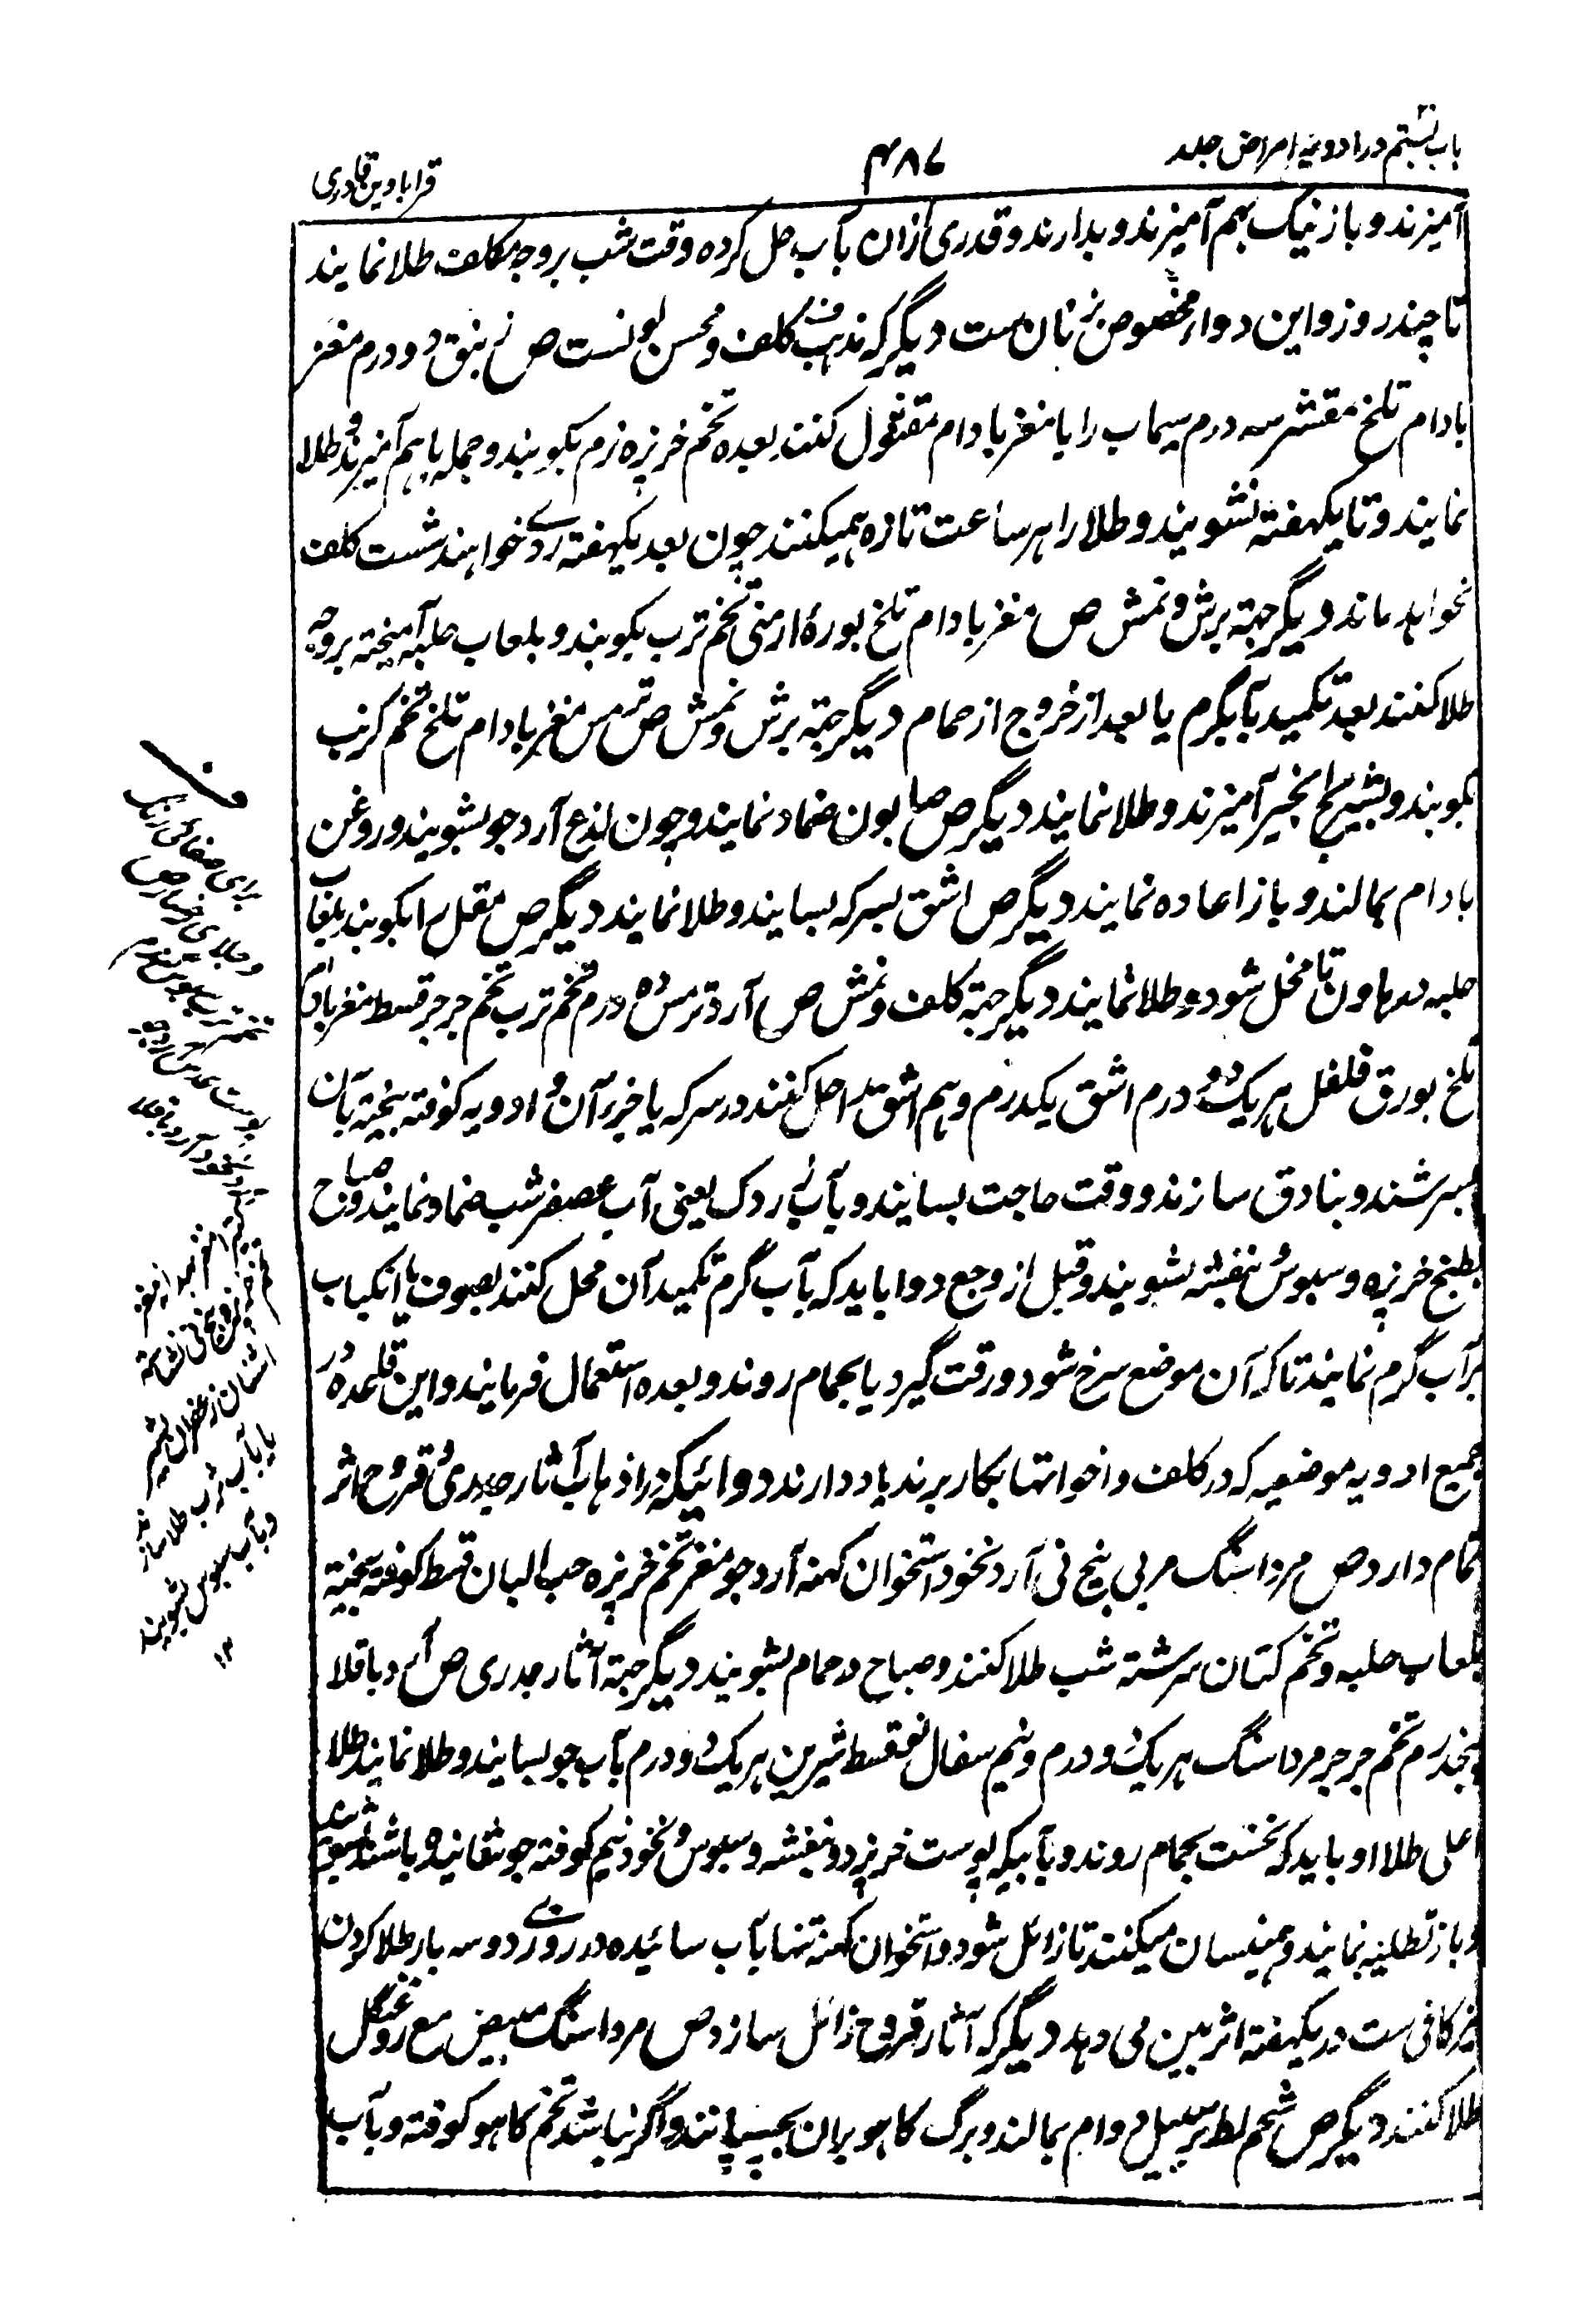 باب بستم در ادویه امراض جلد
۴۸۷
قرابادین قادری
آمیزند و باز نیک بهم آمیزند و بدارند و قدری ازان بآب حل کرده وقت شب بر وجه مکلف طلا نمایند
تا چند روز و این دواء مخصوص بزنان ست دیگر که مذهب کلف و محسن لونست ص زیبق دو درم مغز
بادام تلخ مقشر سه درم سیماب را با مغز بادام مقتول کنند بعده تخم خرپزه نرم بکوبند و جمله باهم آمیزند و طلا
نمایند و تا یکهفته نشویند و طلا را هر ساعت تازه همیکنند چون بعد یکهفته روے خواهند شست کلف
نخواهد ماند دیگر جهته برش و نمش ص مغز بادام تلخ بورۀ ارمنی تخم ترب بکوبند و بلعاب حلبه آمیخته بر وجه
طلا کنند بعد تکمید بآبگرم یا بعد از خروج از حمام دیگر جهته برش و نمش ص ترمس مغز بادام تلخ تخم کرنب
بکوبند و بشیر انجیر آمیزند و طلا نمایند دیگر ص صابون ضماد نمایند و چون لذع آرد جو بشویند و روغن
بادام بمالند و باز اعاده نمایند دیگر ص اشق بسرکه بسایند و طلا نمایند دیگر ص مقل را بکوبند بلعاب
حلبه در هاون تا منحل شود و طلا نمایند دیگر جهته کلف و نمش ص آرد ترمس ده درم تخم ترب تخم جرجر قسط مغز بادام
تلخ بورق فلفل هریک دو درم اشق یکدرم و هم اشق را حل کنند در سرکه یا خر و آن ادویه کوفته بیخته بآن
بسرشند و بنادق سازند و وقت حاجت بسایند و بآب زردک یعنی آب عصفر شب ضماد نمایند و صباح
بطبیخ خرپزه و سبوس بنفشه بشویند و قبل از وضع دوا باید که بآب گرم تکمید آن محل کنند بصوف یا انکباب
بر آب گرم نمایند تا که آن موضع سرخ شود و رقت گیرد یا بحمام روند و بعده استعمال فرمایند و این قاعده در
جمیع ادویه موضعیه که در کلف و اخواتها بکار برند یاد دارند دوائیکه در اذهاب آثار جدری و قروح اثر
تمام دارد ص مرداسنگ مربی بیخ نی آرد نخود استخوان کهنه آرد جو مغز تخم خرپزه حب البان قسط کوفته بیخته
بلعاب حلبه و تخم کتان سرشته شب طلا کنند و صباح در حمام بشویند دیگر جهته آثار جدری ص آرد باقلا
پنجدرم تخم جرجر مرداسنگ هریک دو درم و نیم سفال نو قسط شیرین هریک دو درم بآب جو بسایند و طلا نمایند طلا
علی طلا او باید که نخست بحمام روند و بآبیکه پوست خرپزه و بنفشه و سبوس و نخود نیم کوفته جوشانیده باشند بشویند
و باز تطلیه نمایند و همینسان میکنند تا زائل شود و استخوان کهنه تنها بآب سائیده در روزے دو سه بار طلا کردن
نیز کافی ست در یکهفته اثر بین می دهد دیگر که آثار قروح زائل سازد ص مرداسنگ مبیض مع روغن گل
طلا کنند دیگر ص شحم بط بر سبیل دوام بمالند و برگ کاهو بران بچسپانند و اگر نباشد تخم کاهو کوفته و بآب
برای صفائی رنگ
و جلای رخسار ص
تخم ترب سبوس گندم
پوست عدس آرد جو
آرد نخود آرد باقلا
تخم خرپزه
اشنان زعفران بشیر
یا بآب ترب طلا سازند
و بآب سبوس بشویند
۱۲